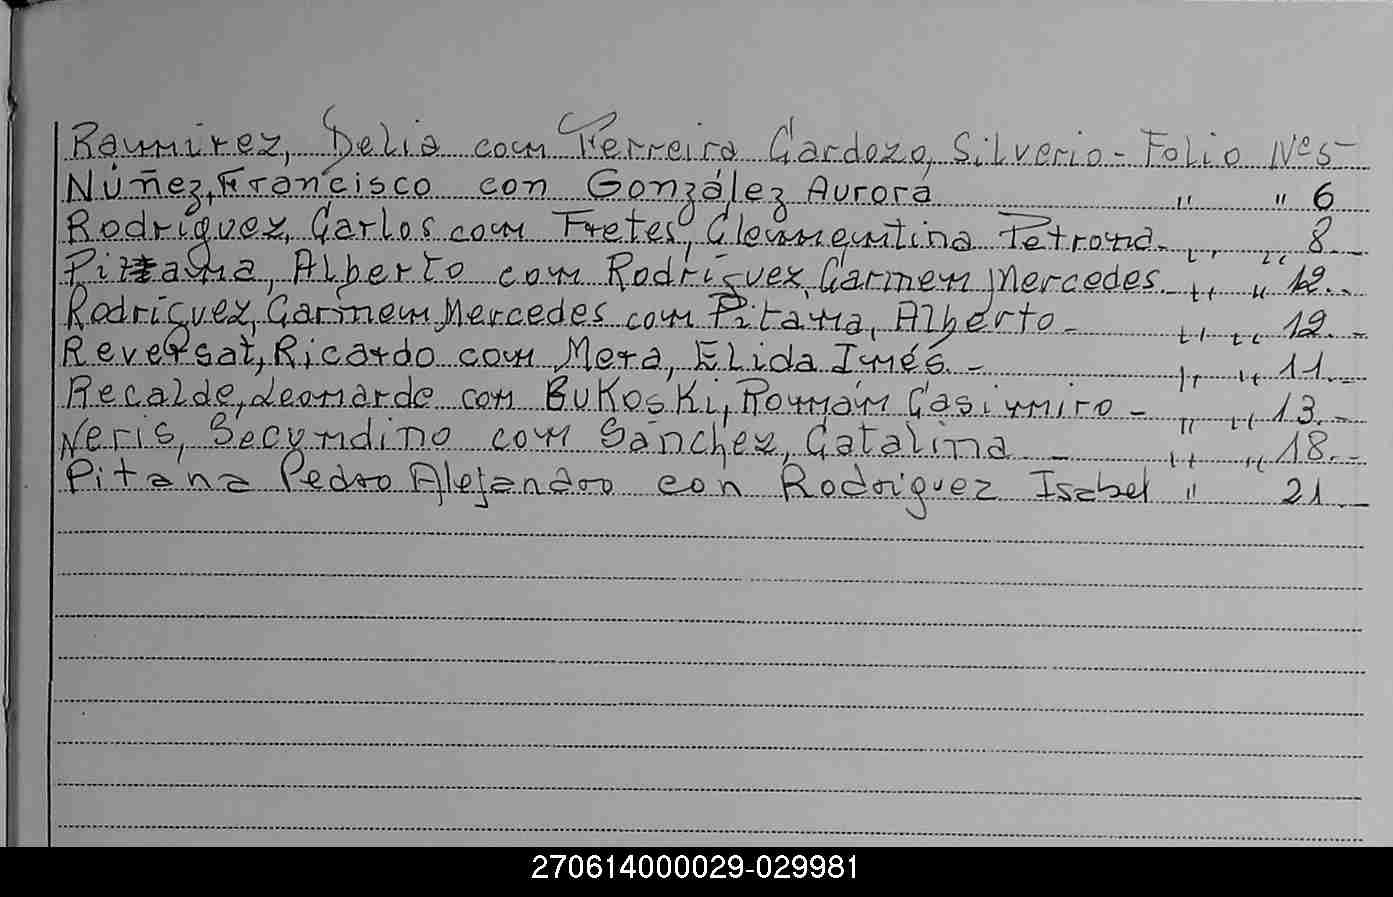 Ramirez, Delia con Ferreira Cardozo, Silverio - Folio Nº 5-
Núñez, Francisco con González Aurora " " 6
Rodríguez, Carlos con Fretes, Clementina Petrona. " " 8
Pitana, Alberto con Rodríguez, Carmen Mercedes. " " 12.
Rodríguez, Carmen Mercedes con Pitana, Alberto - " " 12. -
Reversat, Ricardo con Mera, Elida Inés. - " " 11. -
Recalde, Leonardo con Bukoski, Román Casimiro - " " 13. -
Neris, Secundino con Sánchez, Catalina - " " 18. -
Pitana Pedro Alejandro con Rodriguez Isabel " 21. -
270614000029-029981